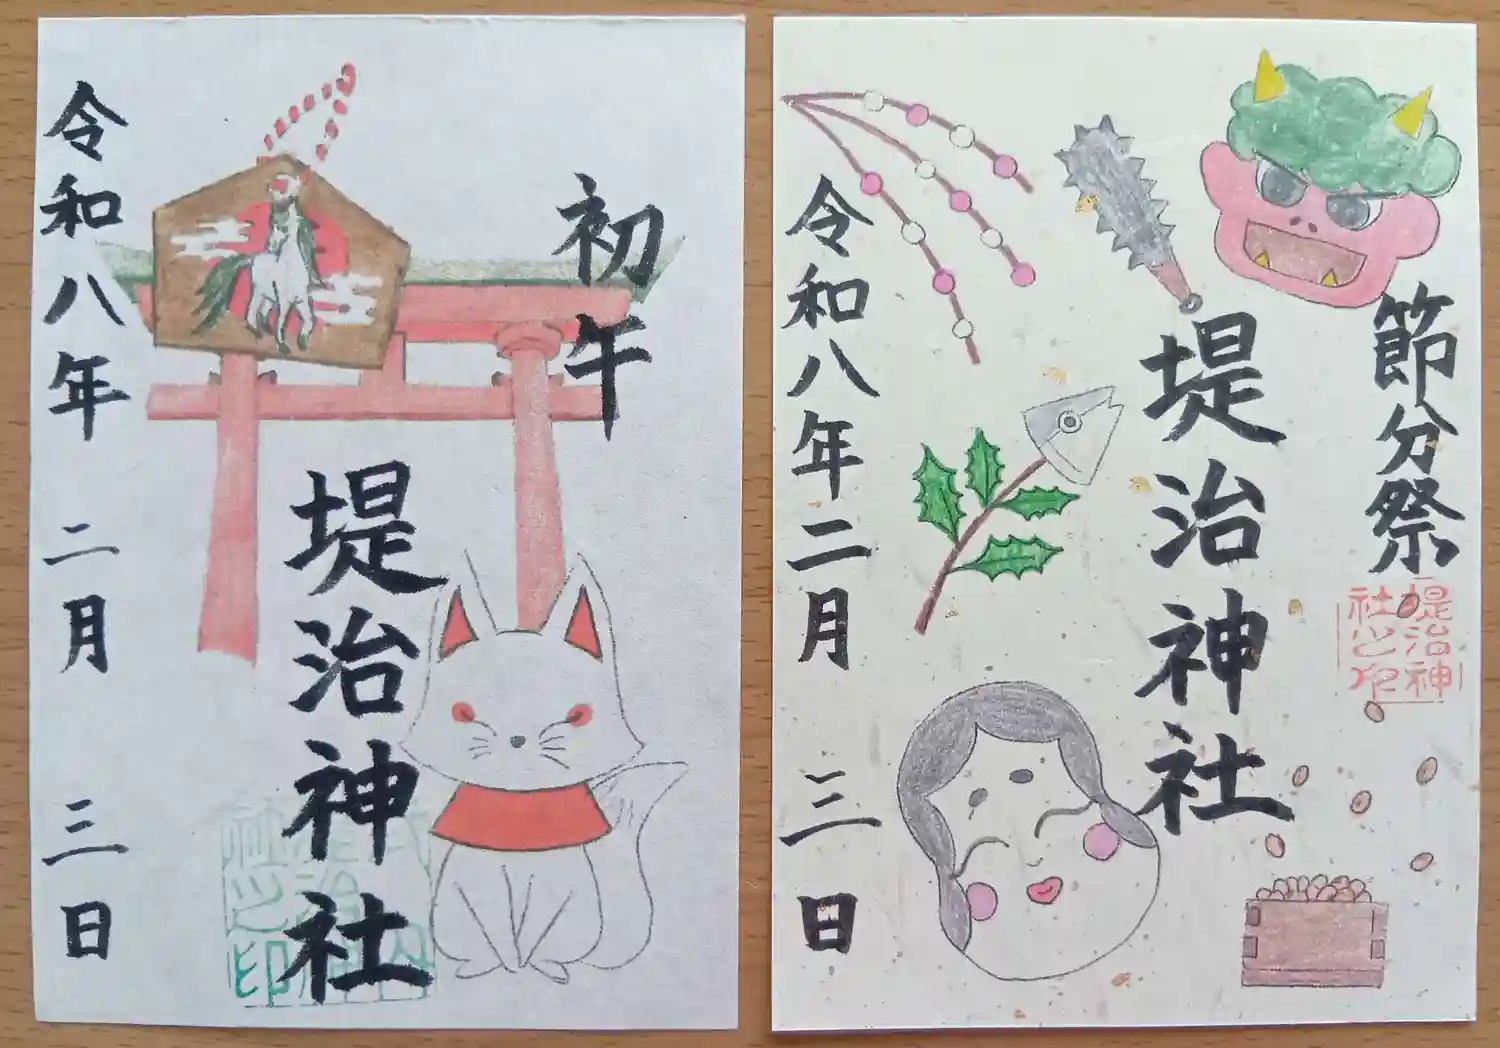 初午
堤治神社
令和八年二月三日
節分祭
堤治神社
令和八年二月三日
堤治神社之印